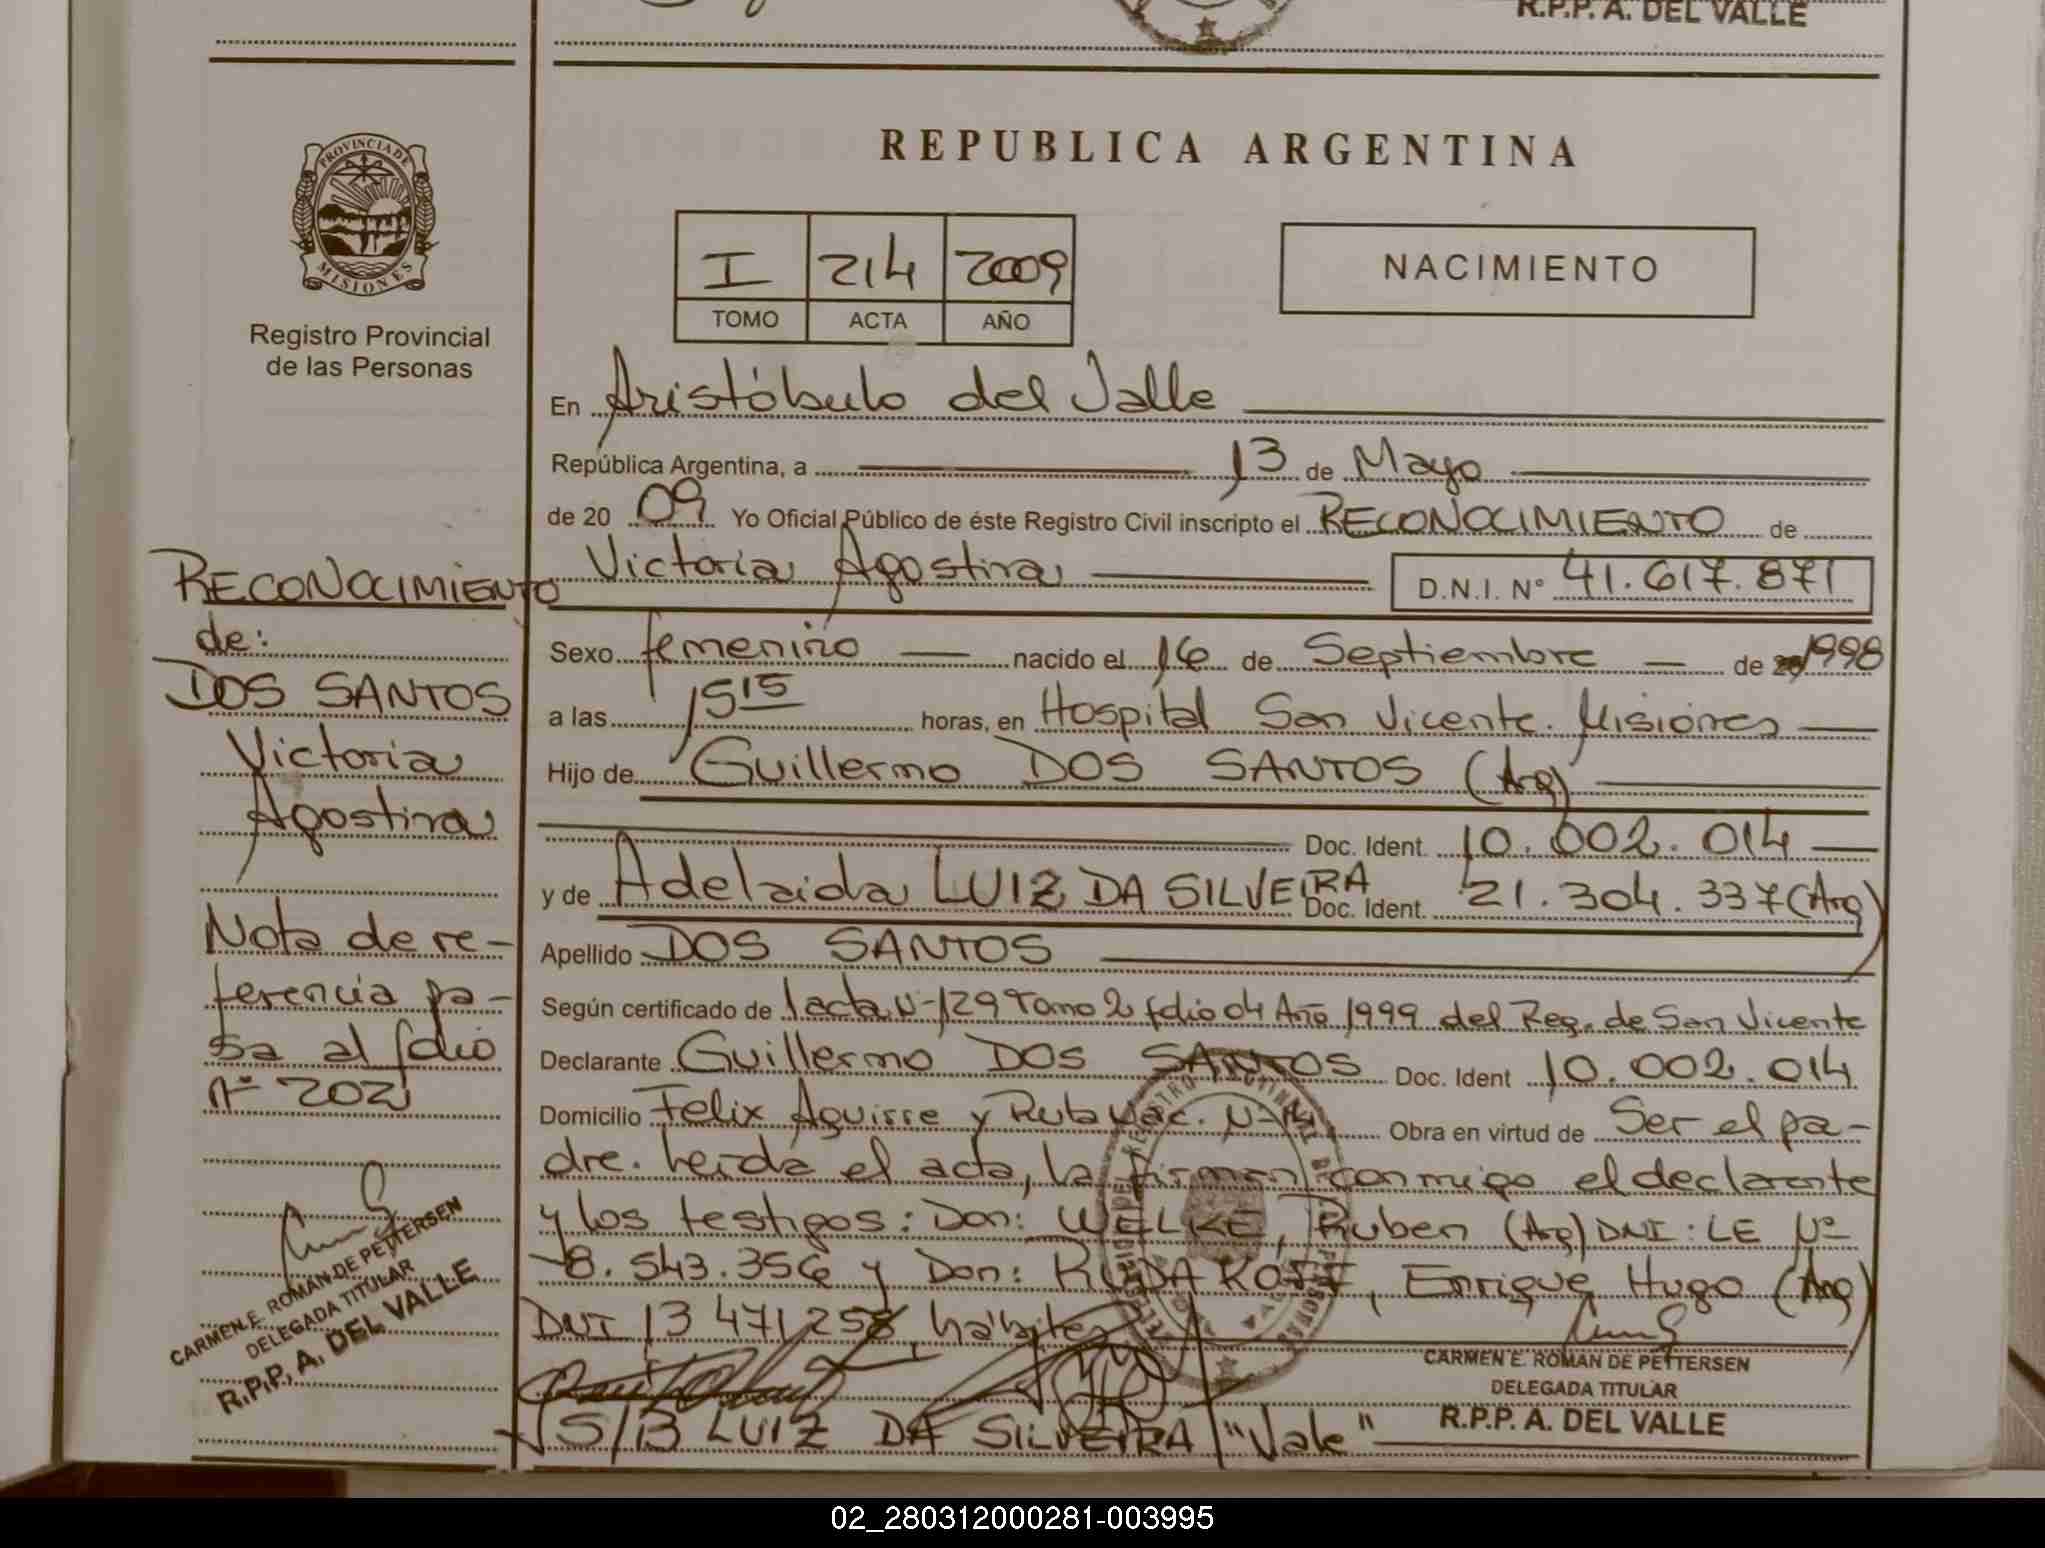 R.P.P. A. DEL VALLE
PROVINCIA DE
MISIONES
Registro Provincial
de las Personas
RECONOCIMIENTO
de:
DOS SANTOS
Victoria
Agostina
Nota de re-
ferencia pa-
sa al folio
Nº 202
CARMEN E. ROMAN DE PETTERSEN
DELEGADA TITULAR
R.P.P. A. DEL VALLE
REPUBLICA ARGENTINA
I 214 2009
TOMO ACTA AÑO
NACIMIENTO
En Aristóbulo del Valle
República Argentina, a 13 de Mayo
de 20 09 Yo Oficial Público de éste Registro Civil inscripto el RECONOCIMIENTO de
Victoria Agostina D.N.I. Nº 41.617.871
Sexo femenino nacido el 16 de Septiembre de 1998
a las 15 15 horas, en Hospital San Vicente. Misiones
Hijo de Guillermo DOS SANTOS (Arg)
Doc. Ident. 10.002.014
y de Adelaida LUIZ DA SILVEIRA Doc. Ident. 21.304.337 (Arg)
Apellido DOS SANTOS
Según certificado de 1 acta Nº 129 Tomo 2 folio 04 Año 1999 del Reg. de San Vicente
Declarante Guillermo DOS SANTOS Doc. Ident 10.002.014
Domicilio Felix Aguirre y Ruta Nac. Nº 14 Obra en virtud de Ser el pa-
dre. Leída el acta, la firman conmigo el declarante
y los testigos: Don: WELKE, Ruben (Arg) DNI: LE Nº
8.543.356 y Don: Enrique Hugo (Arg)
DNI 13 471 258 hábiles
CARMEN E. ROMAN DE PETTERSEN
DELEGADA TITULAR
R.P.P. A. DEL VALLE
S/B LUIZ DA SILVEIRA "Vale"
02_280312000281-003995